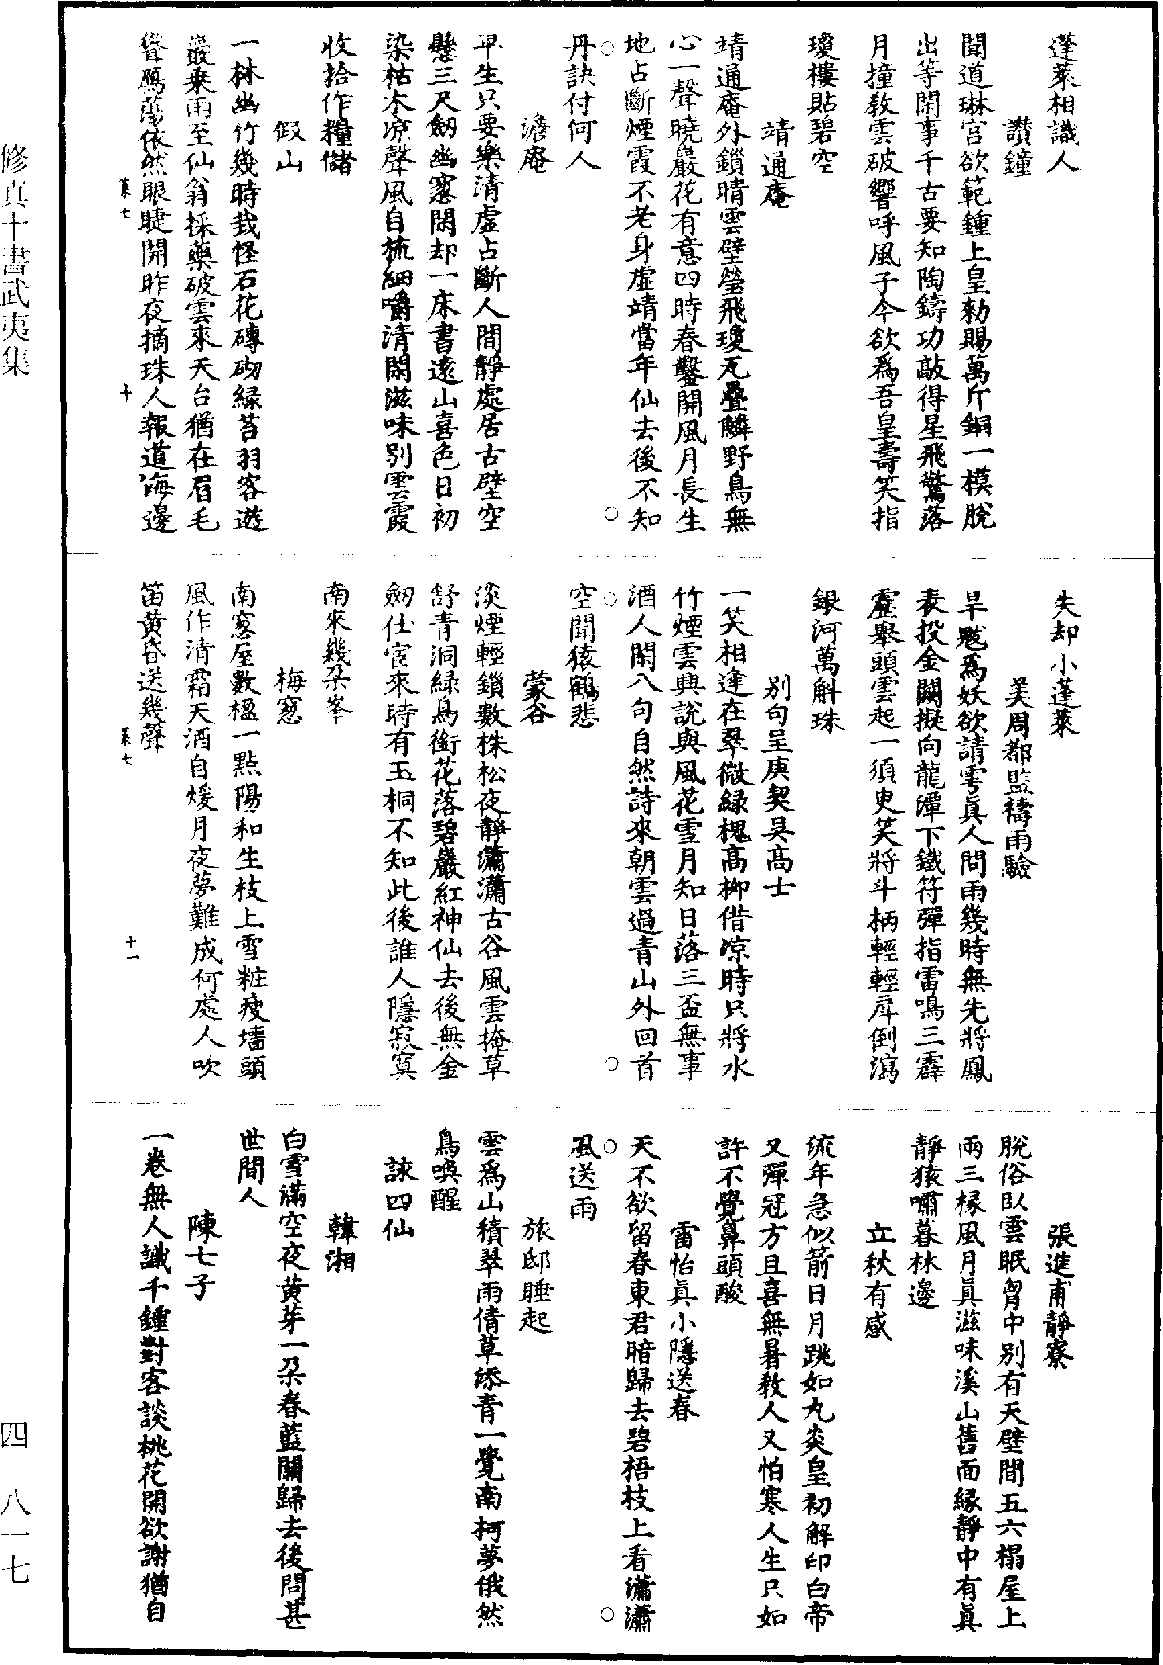 蓬萊相識人
讚鐘
聞道琳宮欲範鐘上皇勑賜萬斤銅一模脫
出等閑事千古要知陶鑄功敲得星飛驚落
月撞敎雲破響呼風子今欲爲吾皇壽笑指
瓊樓貼碧空
靖通庵
靖通庵外鎖晴雲壁瑩飛瓊瓦疊鱗野鳥無
心一聲曉巖花有意四時春鑿開風月長生
地占斷煙霞不老身虛靖當年仙去後不知
丹訣付何人
澹庵
平生只要樂清虛占斷人間靜處居古壁空
懸三尺劒幽窓閑却一床書遠山喜色日初
染枯木凉聲風自梳細嚼清閑滋味別雲霞
收拾作糧儲
假山
一林幽竹幾時栽怪石花磚砌緑苔羽客遊
巖乘雨至仙翁採藥破雲來天台猶在眉毛
聳鴈蕩依然眼睫開昨夜摘珠人報道海邊
失却小蓬萊
美周都監禱雨驗
旱魃爲妖欲請雩眞人問雨幾時無先將鳳
表投金闕擬向龍潭下鐵符彈指雷鳴三霹
靂舉頭雲起一須臾笑將斗柄輕輕戽倒瀉
銀河萬斛珠
別句呈庚契吳高士
一笑相逢在翠微緑槐高柳借凉時只將水
竹煙雲興說與風花雪月知日落三盃無事
酒人閑八句自然詩來朝雲過青山外回首
空聞猿鶴悲
蒙谷
淡煙輕鎖數株松夜靜瀟瀟古谷風雲掩草
舒青洞緑鳥銜花落碧巖紅神仙去後無金
劒仕宦來時有玉桐不知此後誰人隱寂寞
南來幾朶峯
梅窓
南窓屋數楹一點陽和生枝上雪粧瘦墻頭
風作清霜天酒自煖月夜夢難成何處人吹
笛黃昏送幾聲
張進甫靜寮
脫俗臥雲眠胷中別有天壁間五六榻屋上
兩三椽風月眞滋味溪山舊面緣靜中有眞
靜猿嘯暮林邊
立秋有感
流年急似箭日月跳如丸炎皇初解印白帝
又彈冠方且喜無暑敎人又怕寒人生只如
許不覺鼻頭酸
雷怡眞小隱送春
天不欲留春東君暗歸去碧梧枝上看瀟瀟
風送雨
旅邸睡起
雲爲山積翠雨倩草添青一覺南柯夢俄然
鳥喚醒
詠四仙
韓湘
白雪滿空夜黃芽一朶春藍關歸去後問甚
世間人
陳七子
一卷無人識千鍾對客談桃花開欲謝猶自
修眞十書武夷集
第七
十
第七
十一
四
八一七